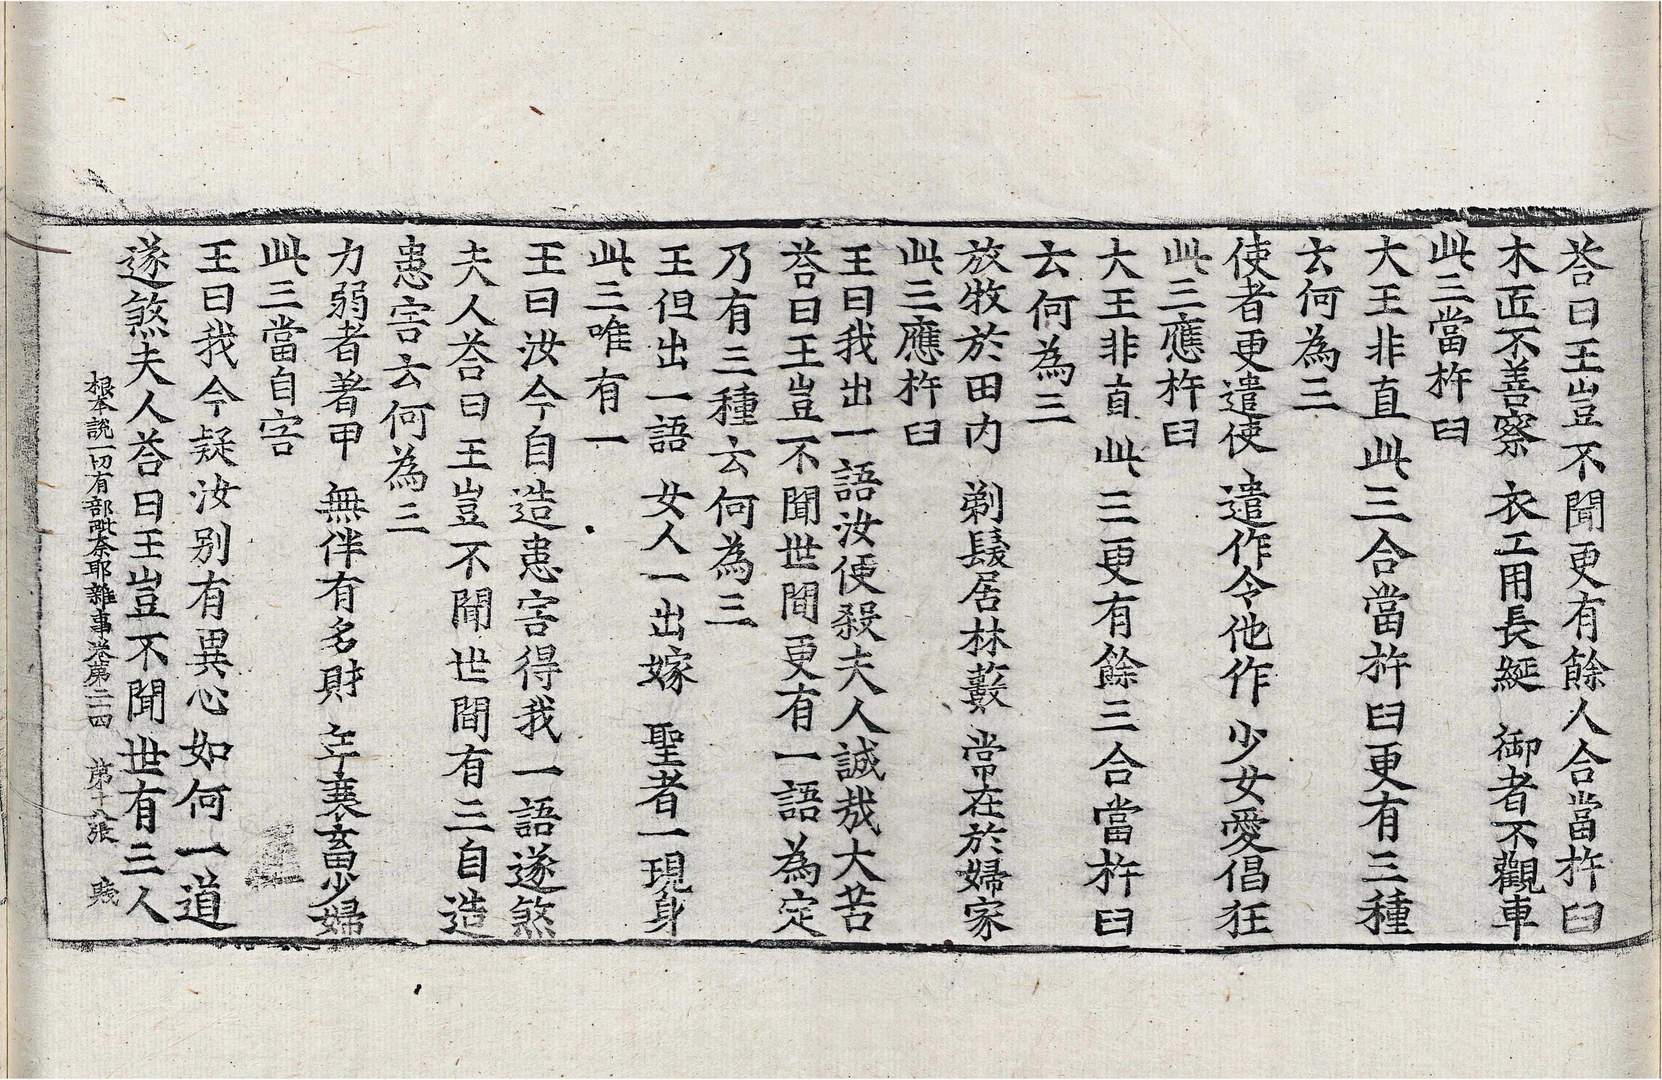 荅曰王豈不聞更有餘人合當杵臼
木匠不善察 衣工用長綖 御者不觀車
此三當杵臼
大王非直此三合當杵臼更有三種
云何為三
使者更遣使 遣作令他作 少女愛倡狂
此三應杵臼
大王非直此三更有餘三合當杵臼
云何為三
放牧於田內 剃髮居林藪 常在於婦家
此三應杵臼
王曰我出一語汝便殺夫人誠哉大苦
荅曰王豈不聞世間更有一語為定
乃有三種云何為三
王但出一語 女人一出嫁 聖者一現身
此三唯有一
王曰汝今自造患害得我一語遂煞
夫人荅曰王豈不聞世間有三自造
患害云何為三
力弱者著甲 無伴有多財 年衰畜少婦
此三當自害
王曰我今疑汝別有異心如何一道
遂煞夫人荅曰王豈不聞世有三人
根本說一切有部毗奈耶雜事卷第二四 第十八張